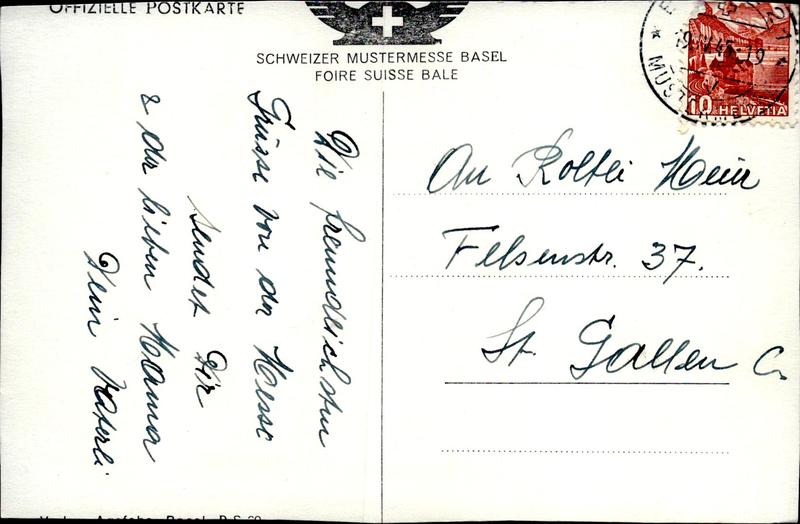 OFFIZIELLE POSTKARTE
SCHWEIZER MUSTERMESSE BASEL
FOIRE SUISSE BALE
Die freundlichsten
Grüsse von der Messe
sendet Dir
& der lieben Mama
Dein Vaterli
An Roltli Heir
Felsenstr. 37.
St. Gallen C.
10 HELVETIA
Basel